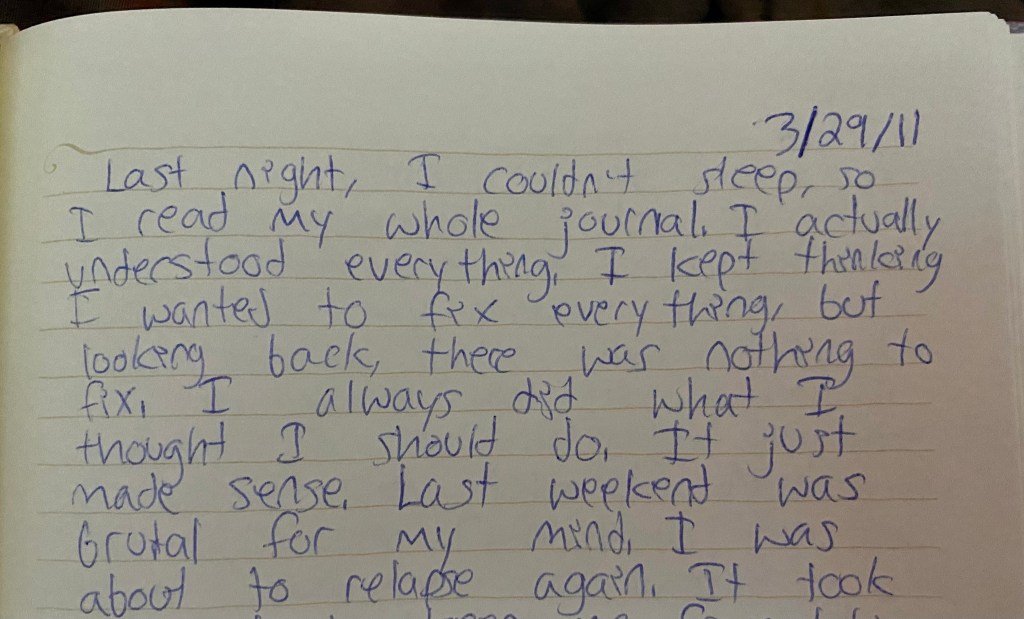 3/29/11
Last night, I couldn't sleep, so
I read my whole journal. I actually
understood everything. I kept thinking
I wanted to fix everything, but
looking back, there was nothing to
fix. I always did what I
thought I should do. It just
made sense. Last weekend was
brutal for my mind. I was
about to relapse again. It took